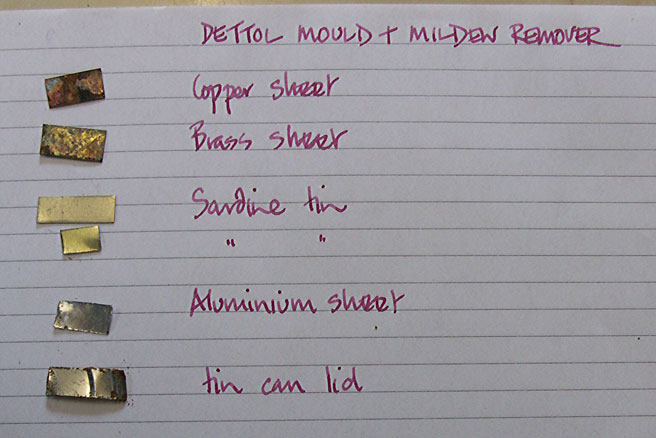 DETTOL MOULD + MILDEW REMOVER
Copper sheet
Brass sheet
Sardine tin
" "
Aluminium sheet
tin can lid